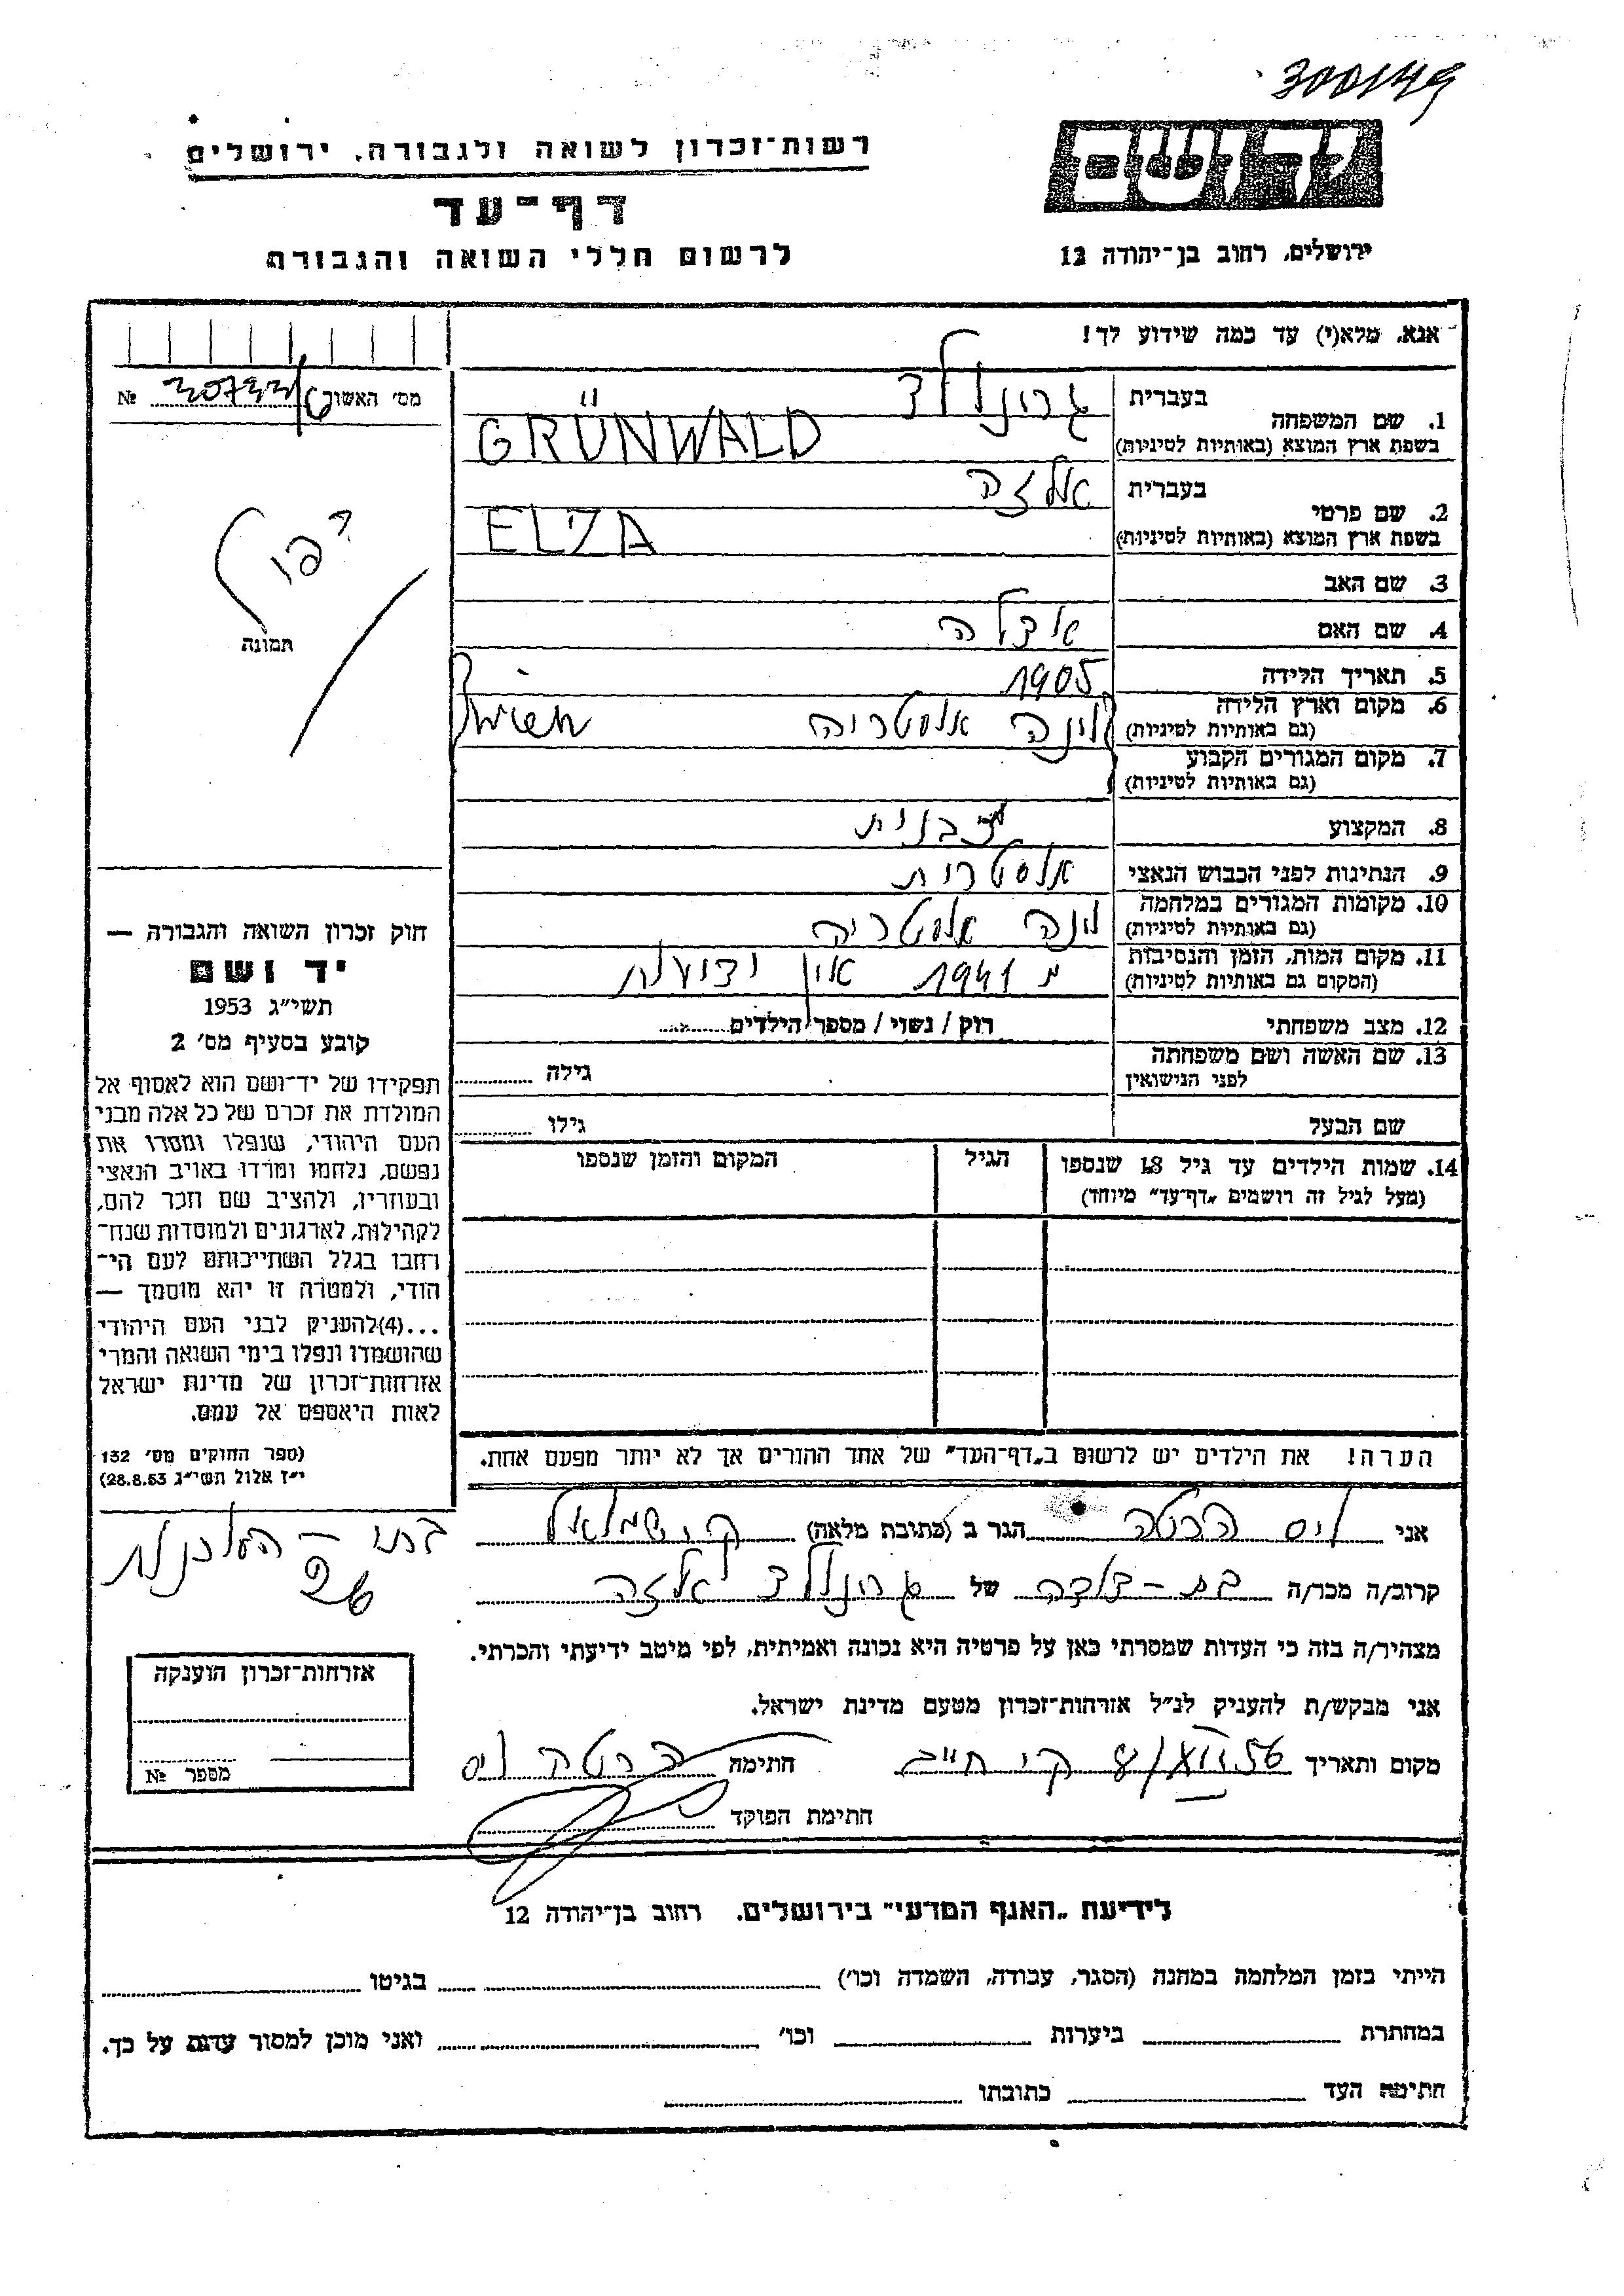 300149
יד ושם
רשות־זכרון לשואה ולגבורה, ירושלים
דף־עד
לרשום חללי השואה והגבורה
ירושלים, רחוב בן־יהודה 12
אנא, מלא(י) עד כמה שידוע לך!
מס' האשור № 30733/6
תמונה
1. שם המשפחה בעברית גרונולד
בשפת ארץ המוצא (באותיות לטיניות) GRÜNWALD
2. שם פרטי בעברית אלזה
בשפת ארץ המוצא (באותיות לטיניות) ELZA
3. שם האב
4. שם האם אדלה
5. תאריך הלידה 1905
6. מקום וארץ הלידה וינה אוסטריה Wien
(גם באותיות לטיניות)
7. מקום המגורים הקבוע
(גם באותיות לטיניות)
8. המקצוע זבנית
9. הנתינות לפני הכבוש הנאצי אוסטרית
10. מקומות המגורים במלחמה וינה אוסטריה
(גם באותיות לטיניות)
11. מקום המות, הזמן והנסיבות מ 1941 אין ידיעות
(המקום גם באותיות לטיניות)
12. מצב משפחתי רוק / נשוי / מספר הילדים
13. שם האשה ושם משפחתה
לפני הנישואין גילה
שם הבעל גילו
14. שמות הילדים עד גיל 18 שנספו הגיל המקום והזמן שנספו
(מעל לגיל זה רושמים „דף־עד" מיוחד)
הערה! את הילדים יש לרשום ב„דף־העד" של אחד ההורים אך לא יותר מפעם אחת.
חוק זכרון השואה והגבורה —
יד ושם
תשי"ג 1953
קובע בסעיף מס' 2
תפקידו של יד־ושם הוא לאסוף אל
המולדת את זכרם של כל אלה מבני
העם היהודי, שנפלו ומסרו את
נפשם, נלחמו ומרדו באויב הנאצי
ובעוזריו, ולהציב שם וזכר להם,
לקהילות, לארגונים ולמוסדות שנח־
רחבו בגלל השתייכותם לעם הי־
הודי, ולמטרה זו יהא מוסמך —
...(4)להעניק לבני העם היהודי
שהושמדו ונפלו בימי השואה והמרי
אזרחות־זכרון של מדינת ישראל
לאות היאספם אל עמם.
(ספר החוקים מס' 132
י"ז אלול תשי"ג 28.8.53)
אני ויס ברטה הגר ב (כתובת מלאה) ק. שמואל
26
קרוב/ה מכר/ה בת-דודה של גרונולד אלזה
מצהיר/ה בזה כי העדות שמסרתי כאן על פרטיה היא נכונה ואמיתית, לפי מיטב ידיעתי והכרתי.
אני מבקש/ת להעניק לנ"ל אזרחות־זכרון מטעם מדינת ישראל.
מקום ותאריך ק. חיים חתימה ברטה ויס
חתימת הפוקד
אזרחות־זכרון הוענקה
מספר №
לידיעת „האגף המדעי" בירושלים, רחוב בן־יהודה 12
הייתי בזמן המלחמה במחנה (הסגר, עבודה, השמדה וכו') בגיטו
במחתרת ביערות וכו' ואני מוכן למסור עדות על כך.
חתימה העד כתובתו